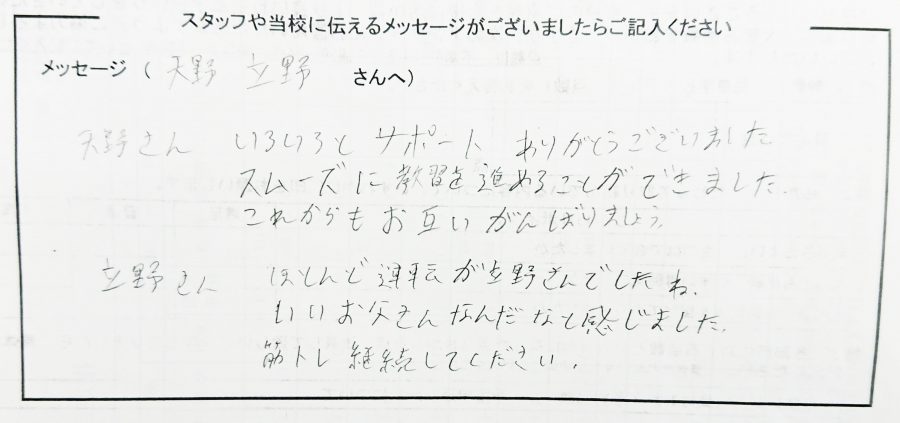 スタッフや当校に伝えるメッセージがございましたらご記入ください
メッセージ ( 天野 立野 さんへ)
天野さん いろいろと サポート ありがとうございました
スムーズに教習を進めることができました.
これからもお互いがんばりましょう.
立野さん ほとんど運転が立野さんでしたね.
いいお父さんなんだなと感じました.
筋トレ継続してください.